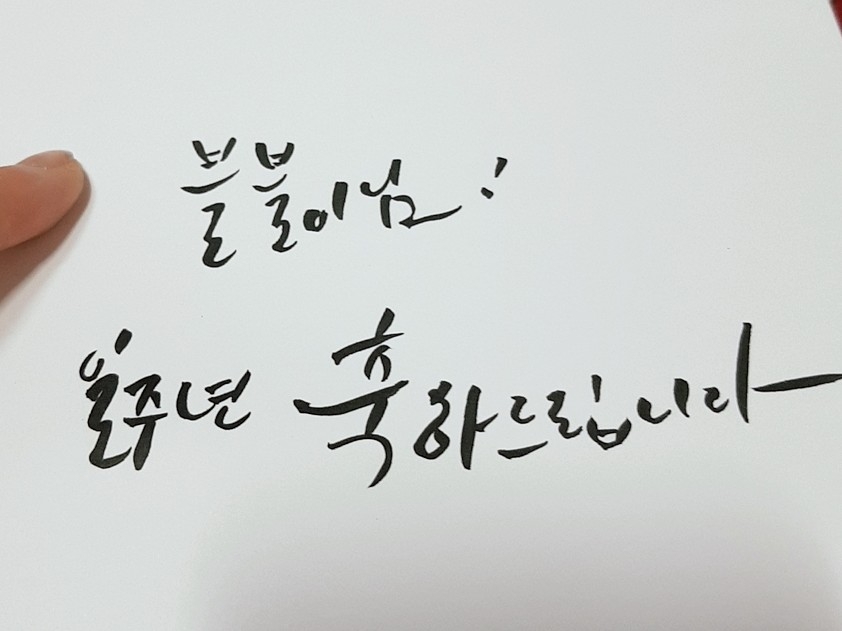 블블이님!
일주년 축하드립니다